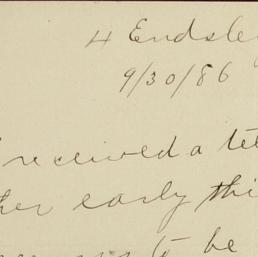 4 Endsle
9/30/86
received a te
her early thi
to be